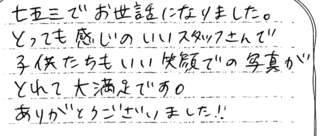 七五三でお世話になりました。
とっても感じのいいスタッフさんで
子供たちもいい笑顔での写真が
とれて大満足です。
ありがとうございました!!